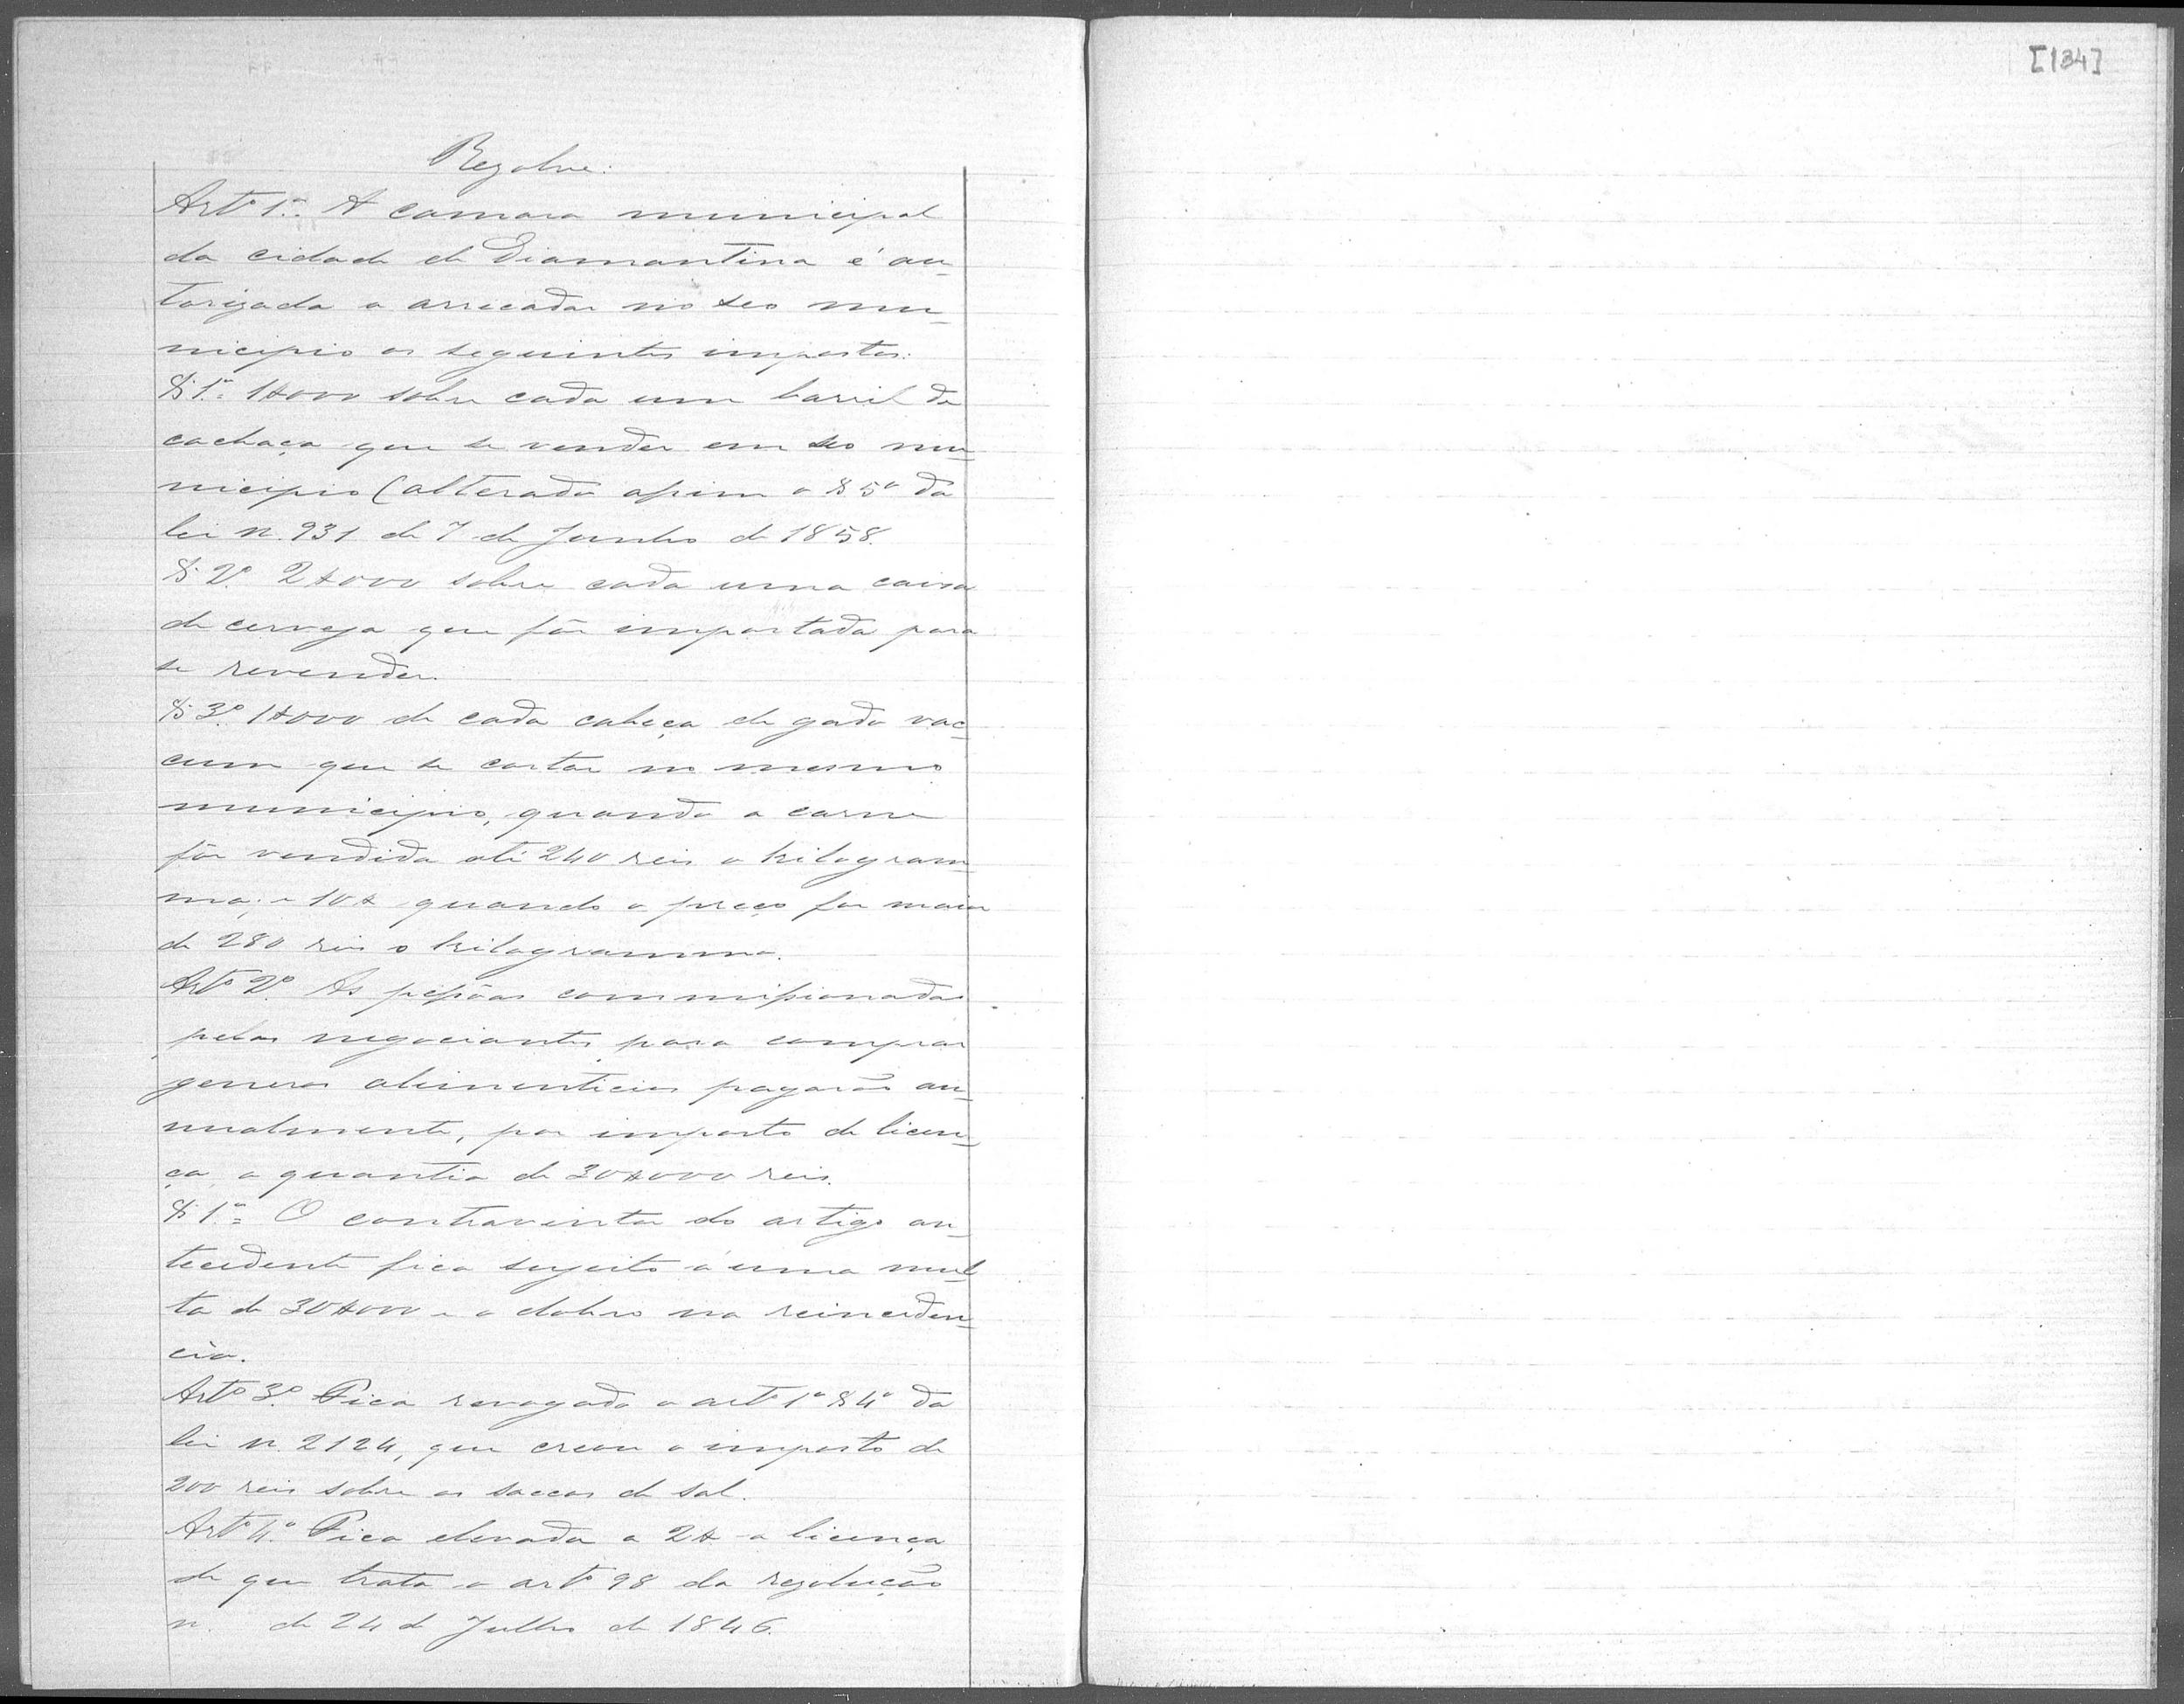 [134]
Rezolve:
Artº 1º. A camara municipal
da cidade de Diamantina é au-
torizada a arrecadar no seo mu-
nicipio os seguintes impostos:
§ 1º. 1$000 sobre cada um barril de
cachaça que se vender em seo mu-
nicipio (alterado assim o § 5º da
lei n. 931 de 7 de Junho de 1858.
§ 2º. 2$000 sobre cada uma caixa
de cerveja que fôr importada para
se revender.
§ 3º. 1$000 de cada cabeça de gado vac-
cum que se cortar no mesmo
municipio, quando a carne
fôr vendida até 240 reis o kilogram-
ma; e 10$ quando o preço for maior
de 280 reis o kilogramma.
Artº 2º. As pessôas commissionadas
pelos negociantes para comprar
generos alimenticios pagarão an-
nualmente, por imposto de licen-
ça, a quantia de 30$000 reis.
§ 1º. O contraventor do artigo an-
tecedente fica sugeito á uma mul-
ta de 30$000 e o dobro na reinciden-
cia.
Artº 3º. Fica revogado o artº 1º § 4º da
lei n. 2124, que creou o imposto de
200 reis sobre os saccos de sal.
Artº 4º. Fica elevada a 2$ a licença
de que trata o artº 98 da rezolução
n. de 24 de Julho de 1846.